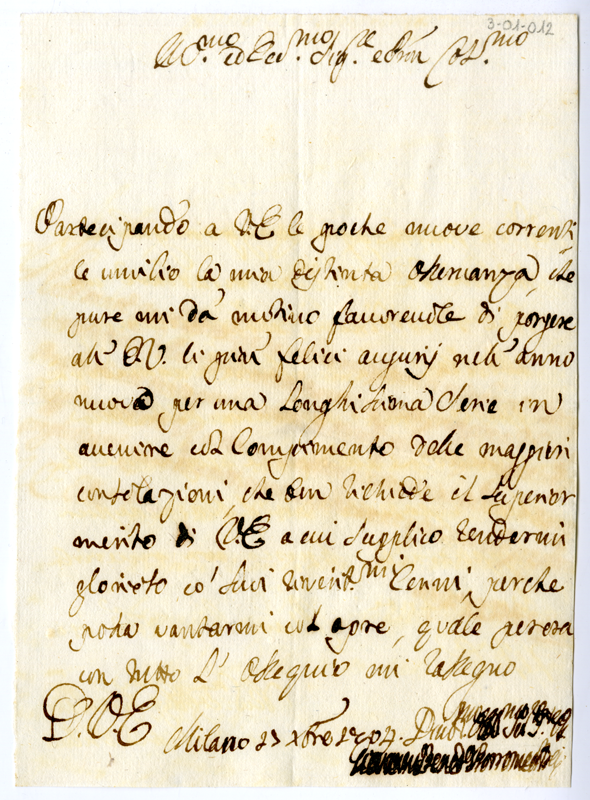 3-01-012
Ill.mo ed Ecc.mo Sig.re e Prin Col.mo
Partecipando a V.E le poche nuove correnti
le umilio la mia distinta osseruanza, che
pure mi dà motiuo fauoreuole di porgere
all' E.V. li più felici augurij nell' anno
nuouo per una longhissima serie in
auuenire col Compimento delle maggiori
consolazioni, che ben richiede il superior
merito di V.E a cui supplico rendermi
glorioso co' suoi riuerit.mi Cenni, perche
possa uantarmi col opre, quale per ora
con tutto l' ossequio mi rassegno
D.V.E
Milano 23 Xbre 1704.